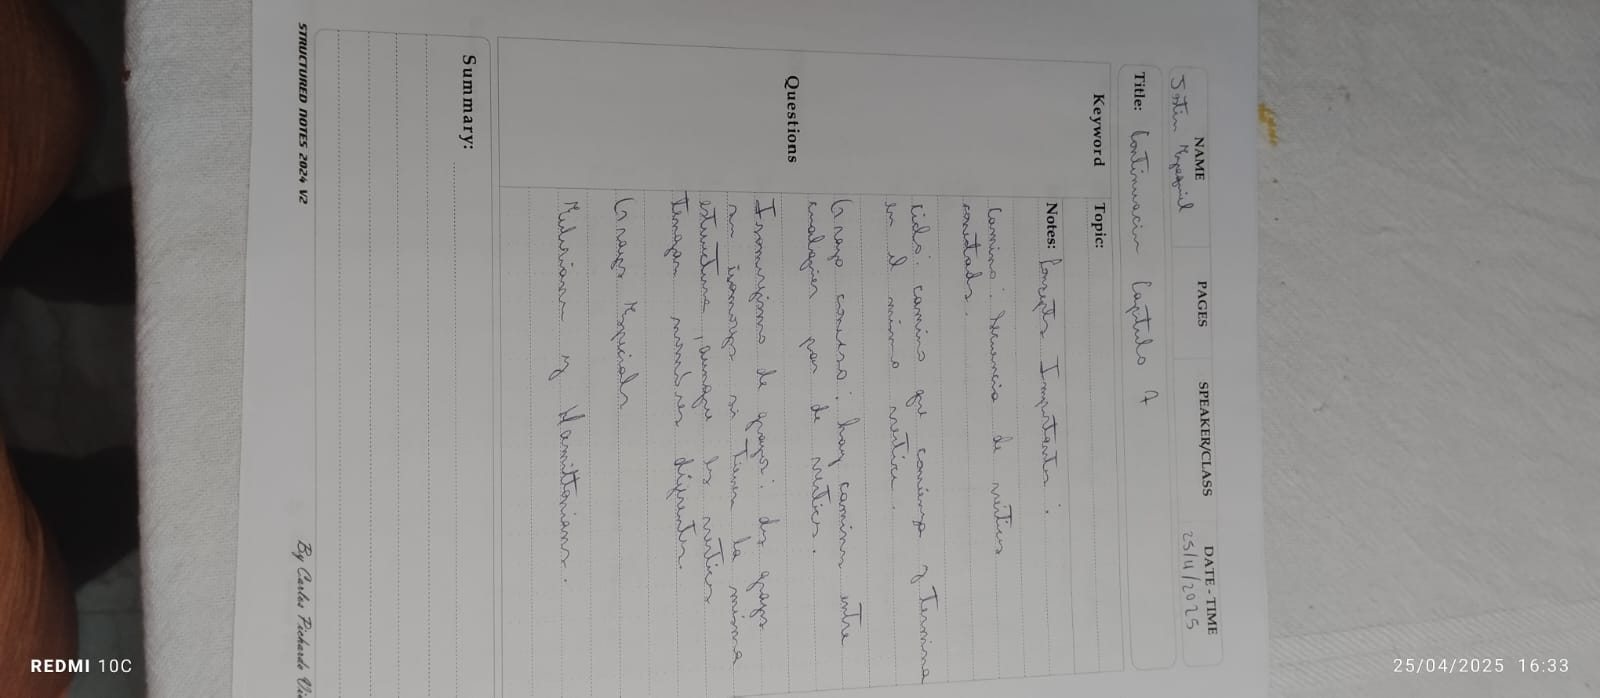 NAME PAGES SPEAKER/CLASS DATE - TIME
25/4/2025
Title: Continuacion Capitulo 7
Keyword Topic:
Notes: Concepts Importants :
Camino: Secuencia de vertices
conectads.
ciclo: camino que comienza y termina
en el mismo vertice.
Grafo conexo: hay caminos entre
cualquier par de vertices.
Questions
Isomorfismo de grafos: ds grafos
son isomorfos si tienen la misma
estructura, aunque ls vertices
tengan nombres diferentes.
Grafos Especials
Eulerianos y Hamiltonianos.
Summary:
STRUCTURED NOTES 2024 V2
By Carlos Pichardo
REDMI 10C
25/04/2025 16:33